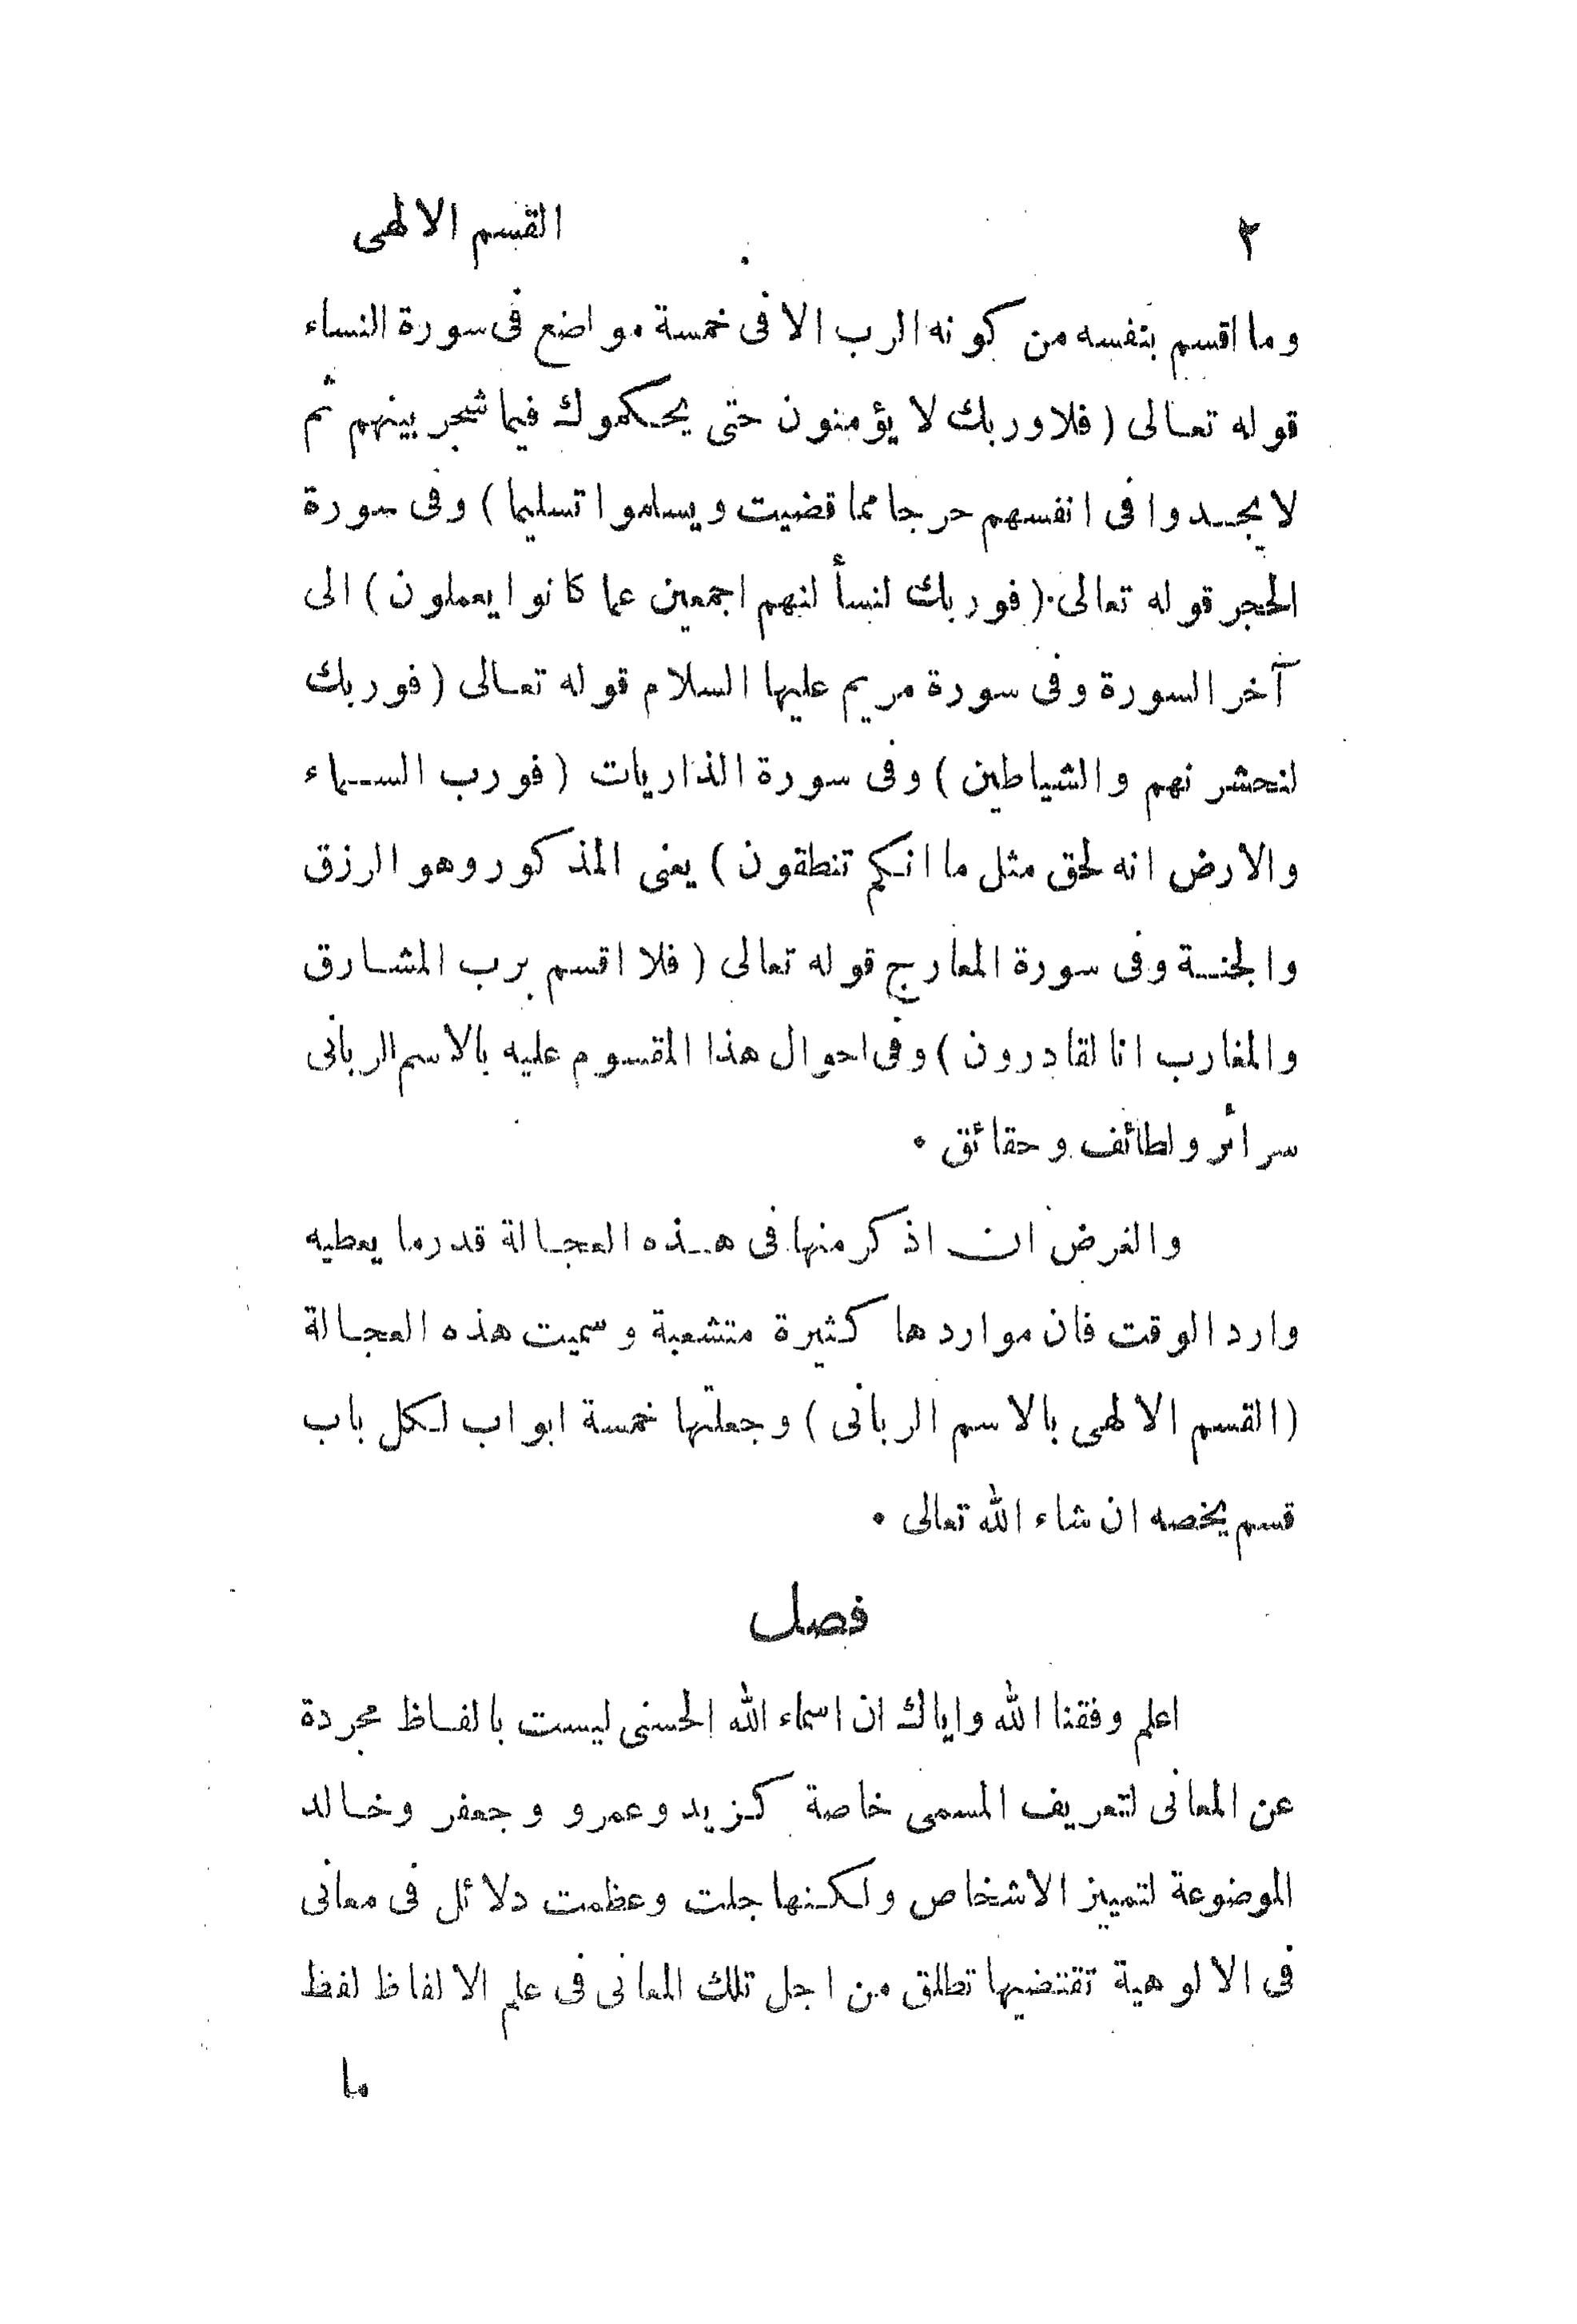 ٢ القسم الالهى
وما اقسم بنفسه من كونه الرب الا فى خمسة مواضع فى سورة النساء
قوله تعالى ( فلا وربك لا يؤمنون حتى يحكموك فيما شجر بينهم ثم
لا يجدوا فى انفسهم حرجا مما قضيت ويسلموا تسليما ) وفى سورة
الحجر قوله تعالى ( فوربك لنسأ لنهم اجمعين عما كانوا يعملون ) الى
آخر السورة وفى سورة مريم عليها السلام قوله تعالى ( فوربك
لنحشرنهم والشياطين ) وفى سورة الذاريات ( فورب السماء
والارض انه لحق مثل ما انكم تنطقون ) يعنى المذكور وهو الرزق
والجنة وفى سورة المعارج قوله تعالى ( فلا اقسم برب المشارق
والمغارب انا لقادرون ) وفى احوال هذا المقسوم عليه بالاسم الربانى
سرائر ولطائف وحقائق •
والغرض ان اذكر منها فى هذه العجالة قدر ما يعطيه
وارد الوقت فان مواردها كثيرة متشعبة وسميت هذه العجالة
( القسم الالهى بالاسم الربانى ) وجعلتها خمسة ابواب لكل باب
قسم يخصه ان شاء الله تعالى •
فصل
اعلم وفقنا الله واياك ان اسماء الله الحسنى ليست بالفاظ مجردة
عن المعانى لتعريف المسمى خاصة كزيد وعمرو وجعفر وخالد
الموضوعة لتمييز الاشخاص ولكنها جلت وعظمت دلائل فى معانى
فى الالوهية تقتضيها تطلق من اجل تلك المعانى فى علم الالفاظ لفظ
ما